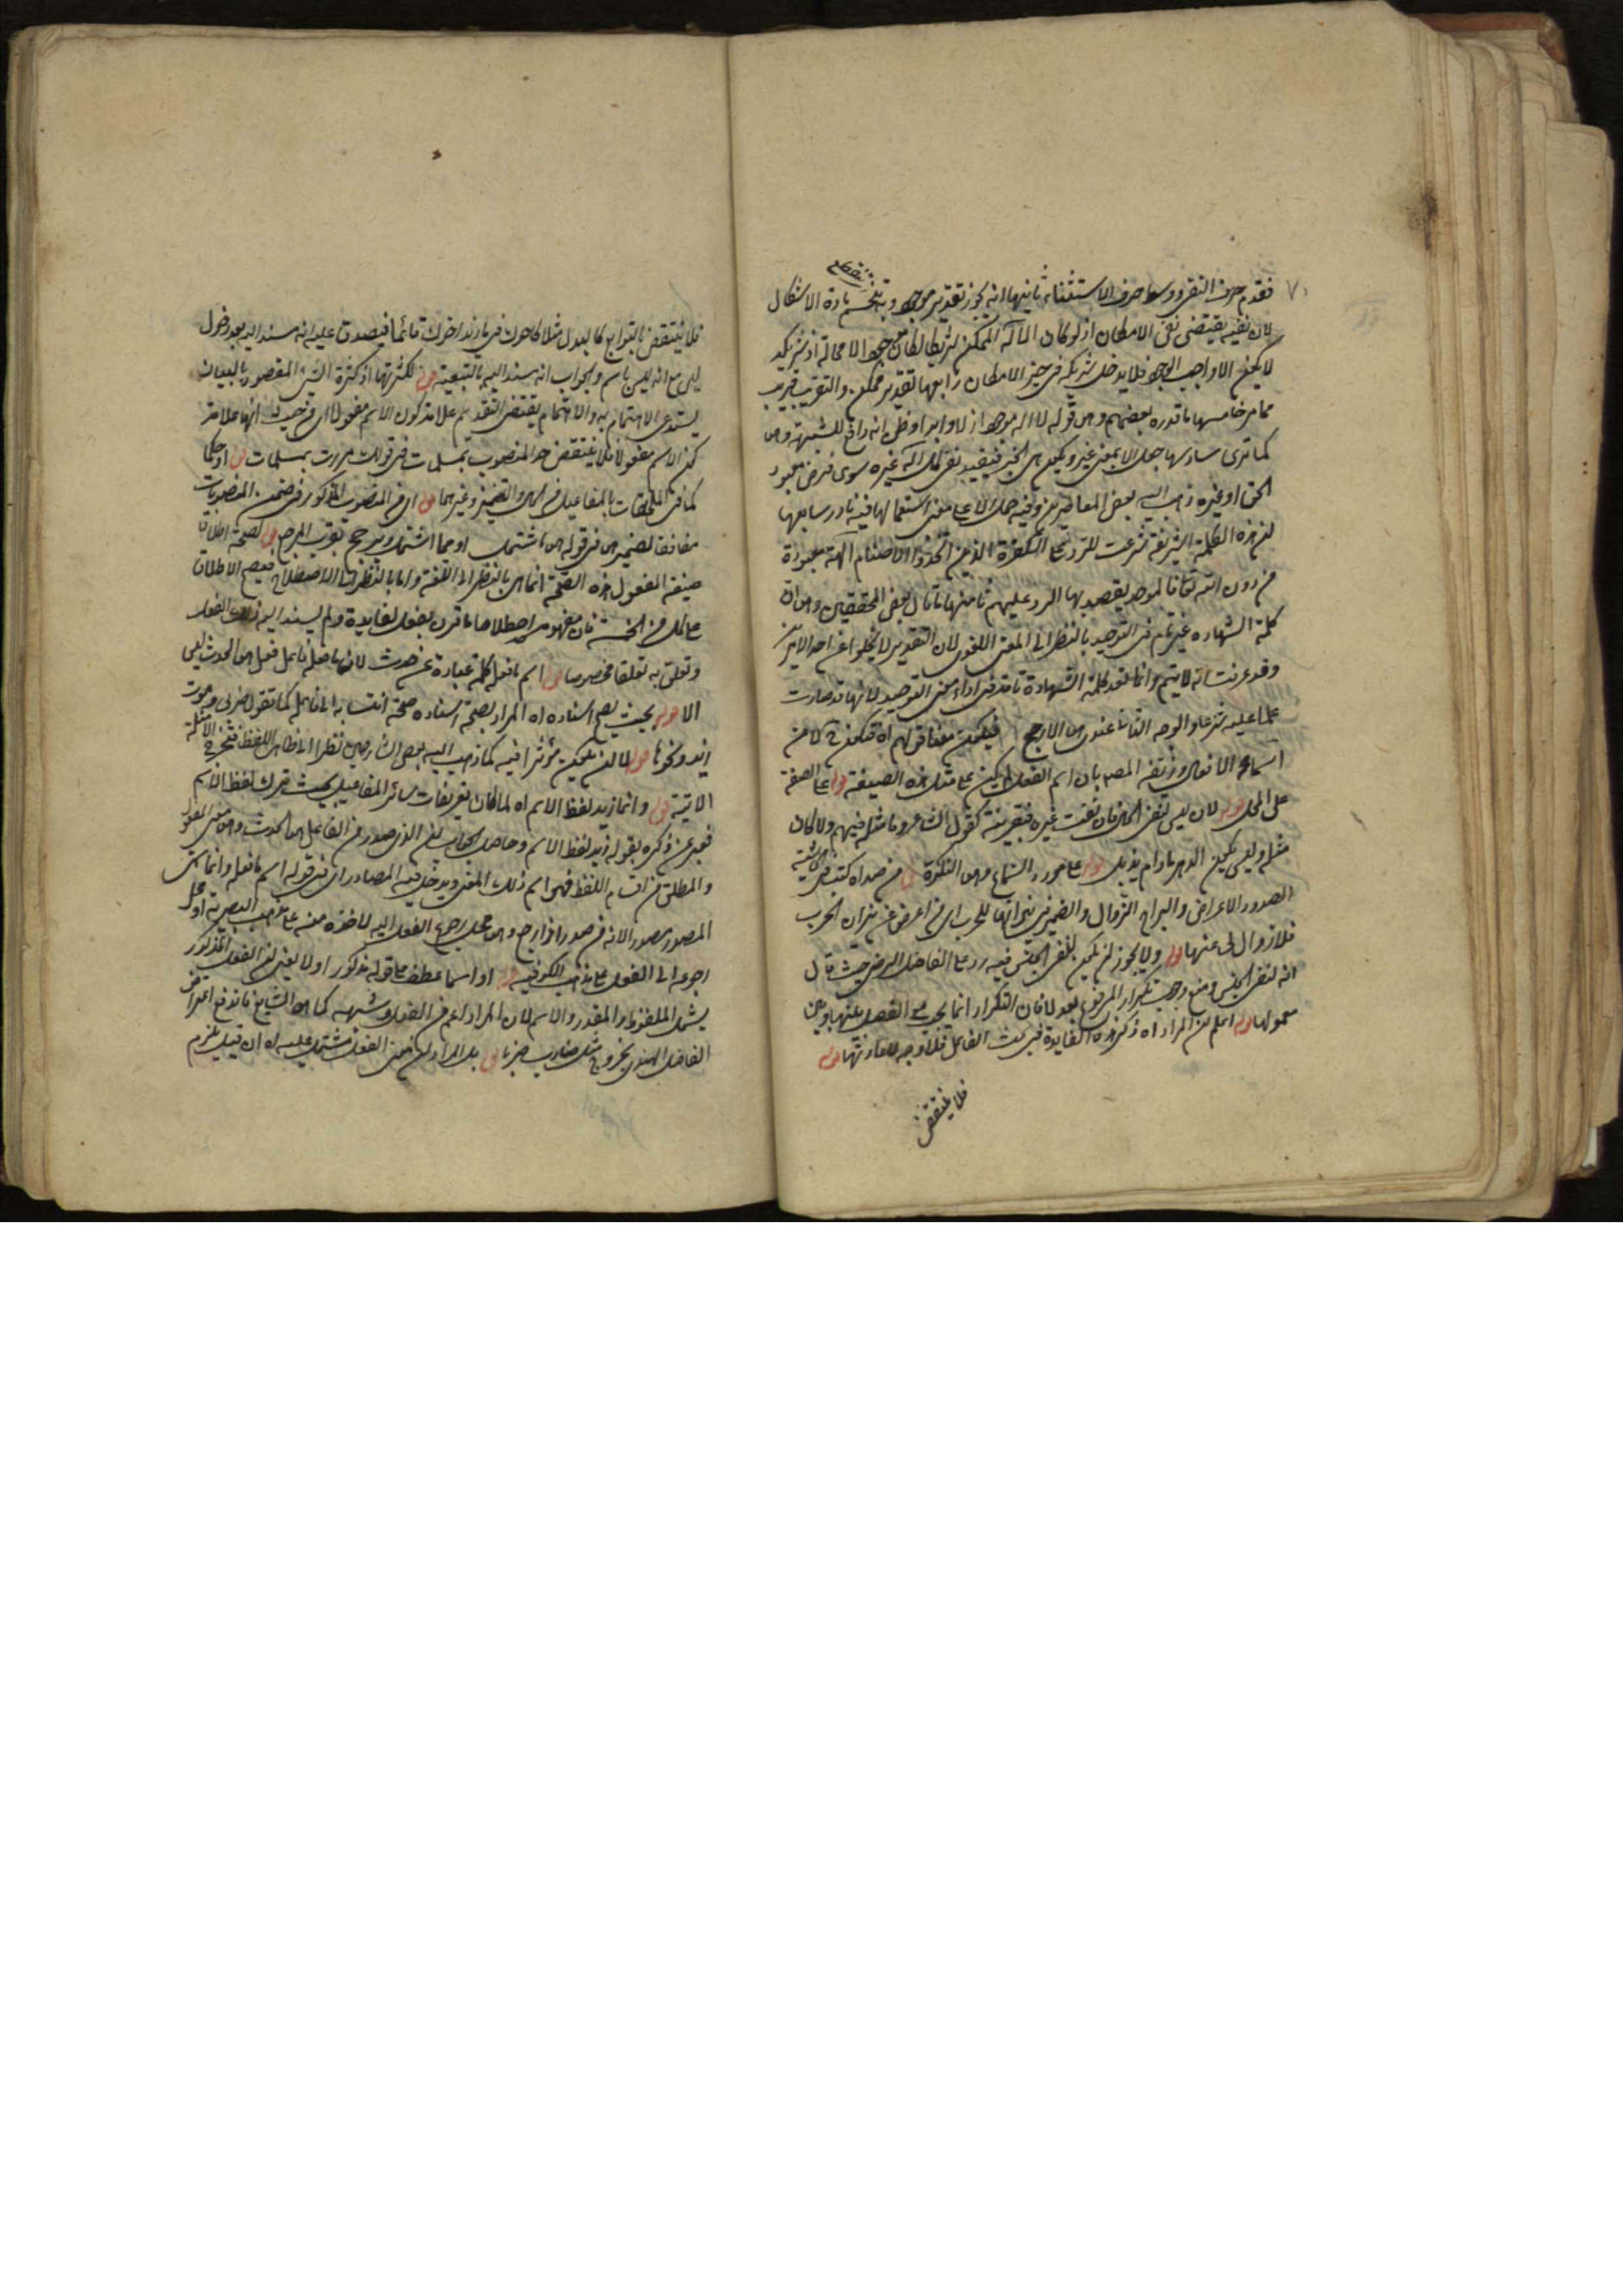 فقدم حرف النفي ووسط حرف الاستثناء ثانيها انه يجوز تقدير موجود وبه تنحسم مادة الاشكال
لان نفيه يقتضي نفي الامكان اذ لو كان الاله الممكن
لا يكون الا واجب الوجود فلا يدخل شريكه في حيز الامكان رابعها تقدير ممكن والتقريب قريب
مما مر خامسها ما قدره بعضهم وهو قوله لا اله موجود ازلا وابدا وظن انه دافع للشبهة وهو
كما ترى سادسها جعل الا بمعنى غير ويكون هي الخبر فيفيد نفي كل اله غيره سوى فرض معبود
الحق او غيره ذهب اليه بعض المعاصرين وفيه حمل الا على معنى استعمالها فيه نادر سابعها
ان هذه الكلمة الشريفة شرعت للرد على الكفرة الذين اتخذوا الاصنام آلهة معبودة
من دون الله تعالى فالموحد يقصد بها الرد عليهم ثامنها ما قال بعض المحققين وهو ان
كلمة الشهادة غير تام في التوحيد بالنظر الى المعنى اللغوي لان التقدير لا يخلو عن احد الامرين
وقد عرفت انه لا يتم وانما تعد كلمة الشهادة تامة في اداء معنى التوحيد لانها قد صارت
علما عليه شرعا والوجه الثالث عندي هو الارجح فيكون معنى قولهم اه
اسماء الافعال وزيفه المصـ بان اسم الفعل لم يكن على مثل هذه الصيغة قوله على الصفة
على المحل قوله لان ليس لنفي الحال فان نفت غيره فبقرينة كقول الشاعر وما مثله فيهم ولا كان
مثله وليس يكون الدهر ما دام يذبل قوله على مورد السماع وهو النكرة قوله من صد اه كتب في الحاشية
الصدود الاعراض والبراح الزوال والضمير في نيرانها للحرب اي من اعرض عن نيران الحرب
فلا زوال لي عنها قوله ولا يجوز ان يكون لنفي الجنس فيه رد على الفاضل الرضي حيث قال
انه لنفي الجنس ومنع وجوب تكرار المرفوع بعد لا فان التكرار انما يجب مع الفصل بينها وبين
معمولها قوله اعلم ان المراد اه ذكر هذه الفايدة في بحث الفاعل فلا وجه لاعادتها قوله
فلا ينتقض
فلا ينتقض بالتوابع كالبدل مثلا كاخوك في ما زيد اخوك قائما فيصدق عليه انه مسند اليه بعد دخول
ليس مع انه ليس باسم والجواب انه مسند اليه بالتبعية قوله لكثرتها اذ كثرة الشيء المقصود بالبيان
يستدعي الاهتمام به والاهتمام يقتضي التقديم علامة كون الاسم مفعولا اي من حيث انها علامة
كون الاسم مفعولا فلا ينتقض حد المنصوب بمسلمات في قولك مررت بمسلمات قوله او حكما
كما في الملحقات بالمفاعيل من الحال والتمييز وغيرهما قوله اي من المنصوب المذكور في ضمن المنصوبات
موافقا لضمير هو في قوله هو ما اشتمل او مما اشتمل ويرجح بقرب المرجع قوله لصحة اطلاق
صيغة المفعول هذه الصحة انما هي بالنظر الى اللغة واما بالنظر الى الاصطلاح فيصح الاطلاق
على كل من الخمسة فان مفهومه اصطلاحا ما قرن بفعل لفايدة ولم يسند اليه ذلك الفعل
وتعلق به تعلقا مخصوصا قوله اسم ما فعله كلمة ما عبارة عن حدث لان ما فعله فاعل فعل هو الحدث ليس
الا قوله بحيث يصح اسناده اه المراد بصحة اسناده صحة انتسابه الى فاعله كما تقول ضربي وموت
زيد ونحوها قوله لا ان يكون مؤثرا فيه كما ذهب اليه بعض الشارحين نظرا الى ظاهر اللفظ فتخرج الامثلة
الاتية قوله وانما زيد لفظ الاسم اه لما كان تعريفات سائر المفاعيل بحيث ترك لفظ الاسم
فعبر عن ذكره بقوله زيد لفظ الاسم وحاصل الجواب ان الذي صدر من الفاعل هو الحدث وهو معنى المفعول
والمطلق من اقسام اللفظ فهو اسم ذلك المعنى ويدخل فيه المصادر اي في قوله اسم ما فعله وانما سمي
المصدر مصدرا لانه من صدر اذا رجع وهو محل رجوع الفعل اليه لاخذه منه على مذهب البصرية او محل
رجوعه الى الفعل على مذهب الكوفية قوله او اسما عطف على قوله مذكور اولا يعني ان الفعل المذكور
يشمل الملفوظ والمقدر والاسم لان المراد اعم من الفعل وشبهه كما هو الشايع فاندفع اعتراض
الفاضل الهندي بخروج مثل ضارب ضربا قوله بل المراد ان معنى الفعل مشتمل عليه اه ان قيل يلزم